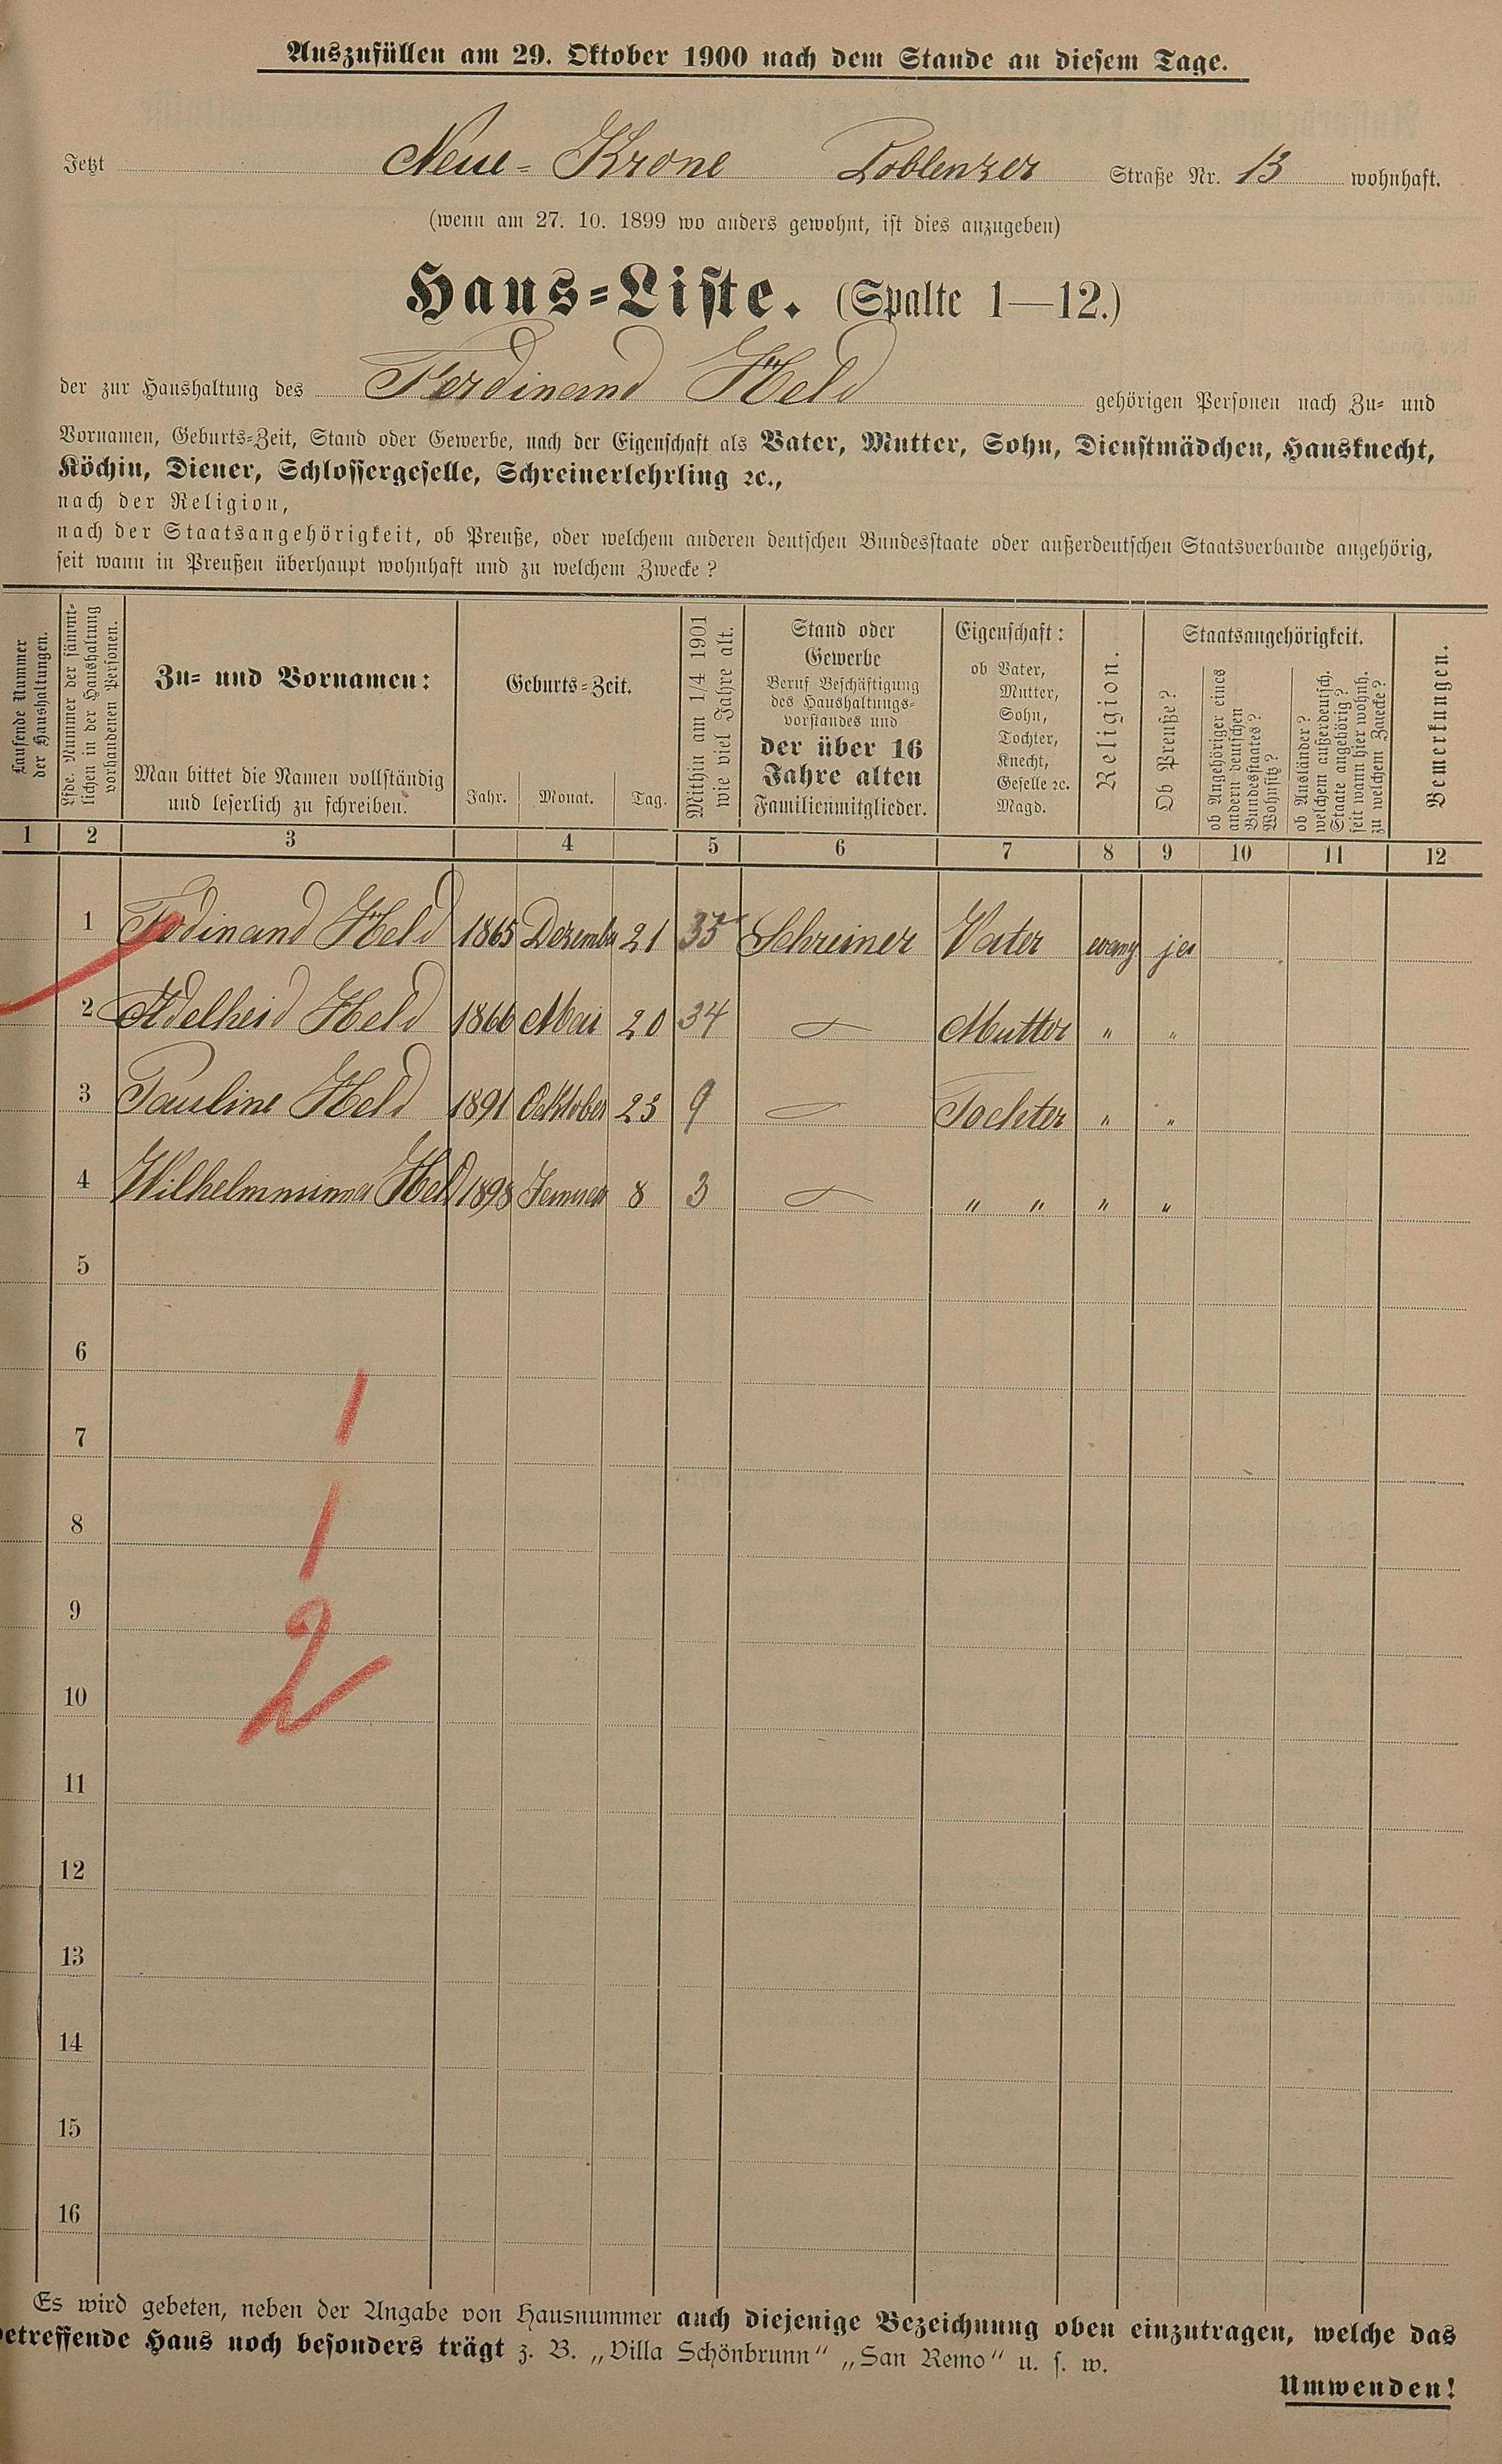 Auszufüllen am 29. Oktober 1900 nach dem Stande an diesem Tage.
Jetzt Neue-Krone Coblenzer Straße Nr. 13 wohnhaft.
(wenn am 27. 10. 1899 wo anders gewohnt, ist dies anzugeben)
Haus-Liste. (Spalte 1—12.)
der zur Haushaltung des Ferdinand Held gehörigen Personen nach Zu- und
Vornamen, Geburts-Zeit, Stand oder Gewerbe, nach der Eigenschaft als Vater, Mutter, Sohn, Dienstmädchen, Hausknecht,
Köchin, Diener, Schlossergeselle, Schreinerlehrling ꝛc.,
nach der Religion,
nach der Staatsangehörigkeit, ob Preuße, oder welchem anderen deutschen Bundesstaate oder außerdeutschen Staatsverbande angehörig,
seit wann in Preußen überhaupt wohnhaft und zu welchem Zwecke?
Laufende Nummer
der Haushaltungen.
Lfde. Nummer der sämmt-
lichen in der Haushaltung
vorhandenen Personen.
Zu- und Vornamen:
Man bittet die Namen vollständig
und leserlich zu schreiben.
Geburts-Zeit.
Jahr. Monat. Tag.
Mithin am 1/4 1901
wie viel Jahre alt.
Stand oder
Gewerbe
Beruf Beschäftigung
des Haushaltungs-
vorstandes und
der über 16
Jahre alten
Familienmitglieder.
Eigenschaft:
ob Vater,
Mutter,
Sohn,
Tochter,
Knecht,
Geselle ꝛc.
Magd.
Religion.
Staatsangehörigkeit.
Ob Preuße?
ob Angehöriger eines
andern deutschen
Bundesstaates?
Wohnsitz?
ob Ausländer?
welchem außerdeutsch.
Staate angehörig?
seit wann hier wohnh.
zu welchem Zwecke?
Bemerkungen.
1 2 3 4 5 6 7 8 9 10 11 12
1 Ferdinand Held 1865 Dezember 21 35 Schreiner Vater evang ja
2 Adelheid Held 1866 Mai 20 34 — Mutter " "
3 Pauline Held 1891 Ocktober 23 9 — Tochter " "
4 Wilhelmmina Held 1898 Januar 8 3 — " " " "
5
6
7
8
9
10
11
12
13
14
15
16
1
1
2
Es wird gebeten, neben der Angabe von Hausnummer auch diejenige Bezeichnung oben einzutragen, welche das
betreffende Haus noch besonders trägt z. B. „Villa Schönbrunn" „San Remo" u. s. w.
Umwenden!